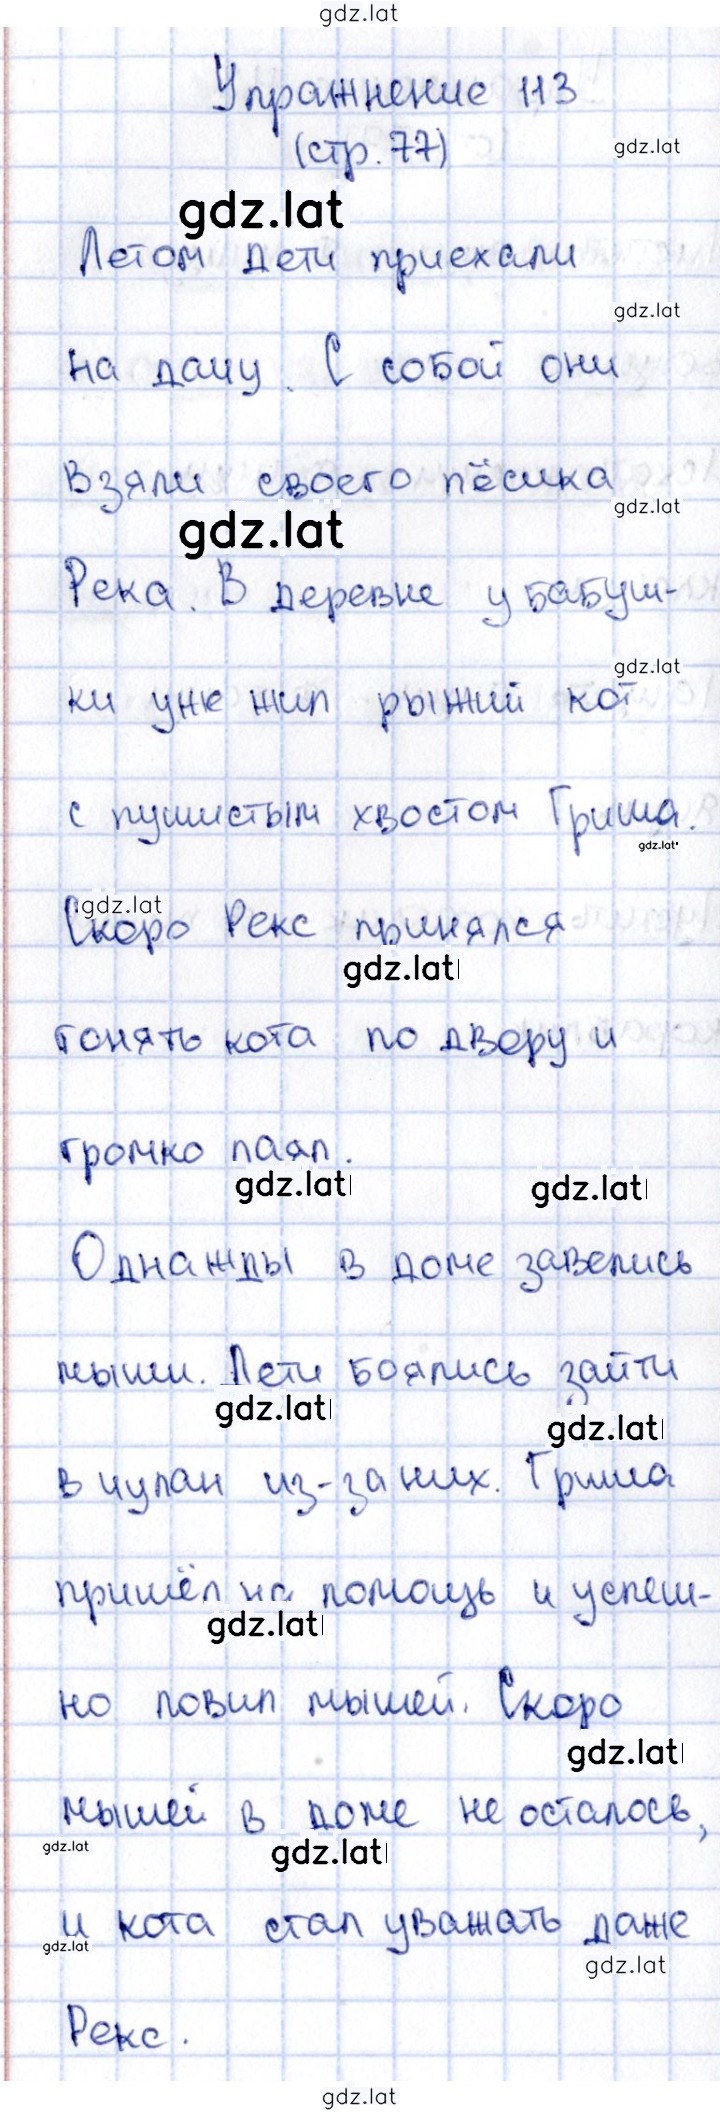 gdz.lat
Упражнение 113
(стр. 77)
gdz.lat
gdz.lat
Летом дети приехали
gdz.lat
на дачу. С собой они
взяли своего пёсика
gdz.lat
gdz.lat
Река. В деревне у бабуш-
gdz.lat
ки уже жил рыжий кот
с пушистым хвостом Гриша.
gdz.lat
gdz.lat
Скоро Рекс принялся
gdz.lat
гонять кота по двору и
громко лаял.
gdz.lat gdz.lat
Однажды в доме завелись
мыши. Дети боялись зайти
gdz.lat
gdz.lat
в чулан из-за них. Гриша
пришёл на помощь и успеш-
gdz.lat
но ловил мышей. Скоро
gdz.lat
мышей в доме не осталось,
gdz.lat
gdz.lat
и кота стал уважать даже
gdz.lat
gdz.lat
Рекс.
gdz.lat